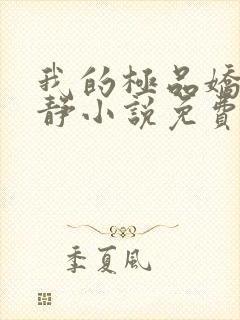 我的極品嬌
靜小說免費
季夏風